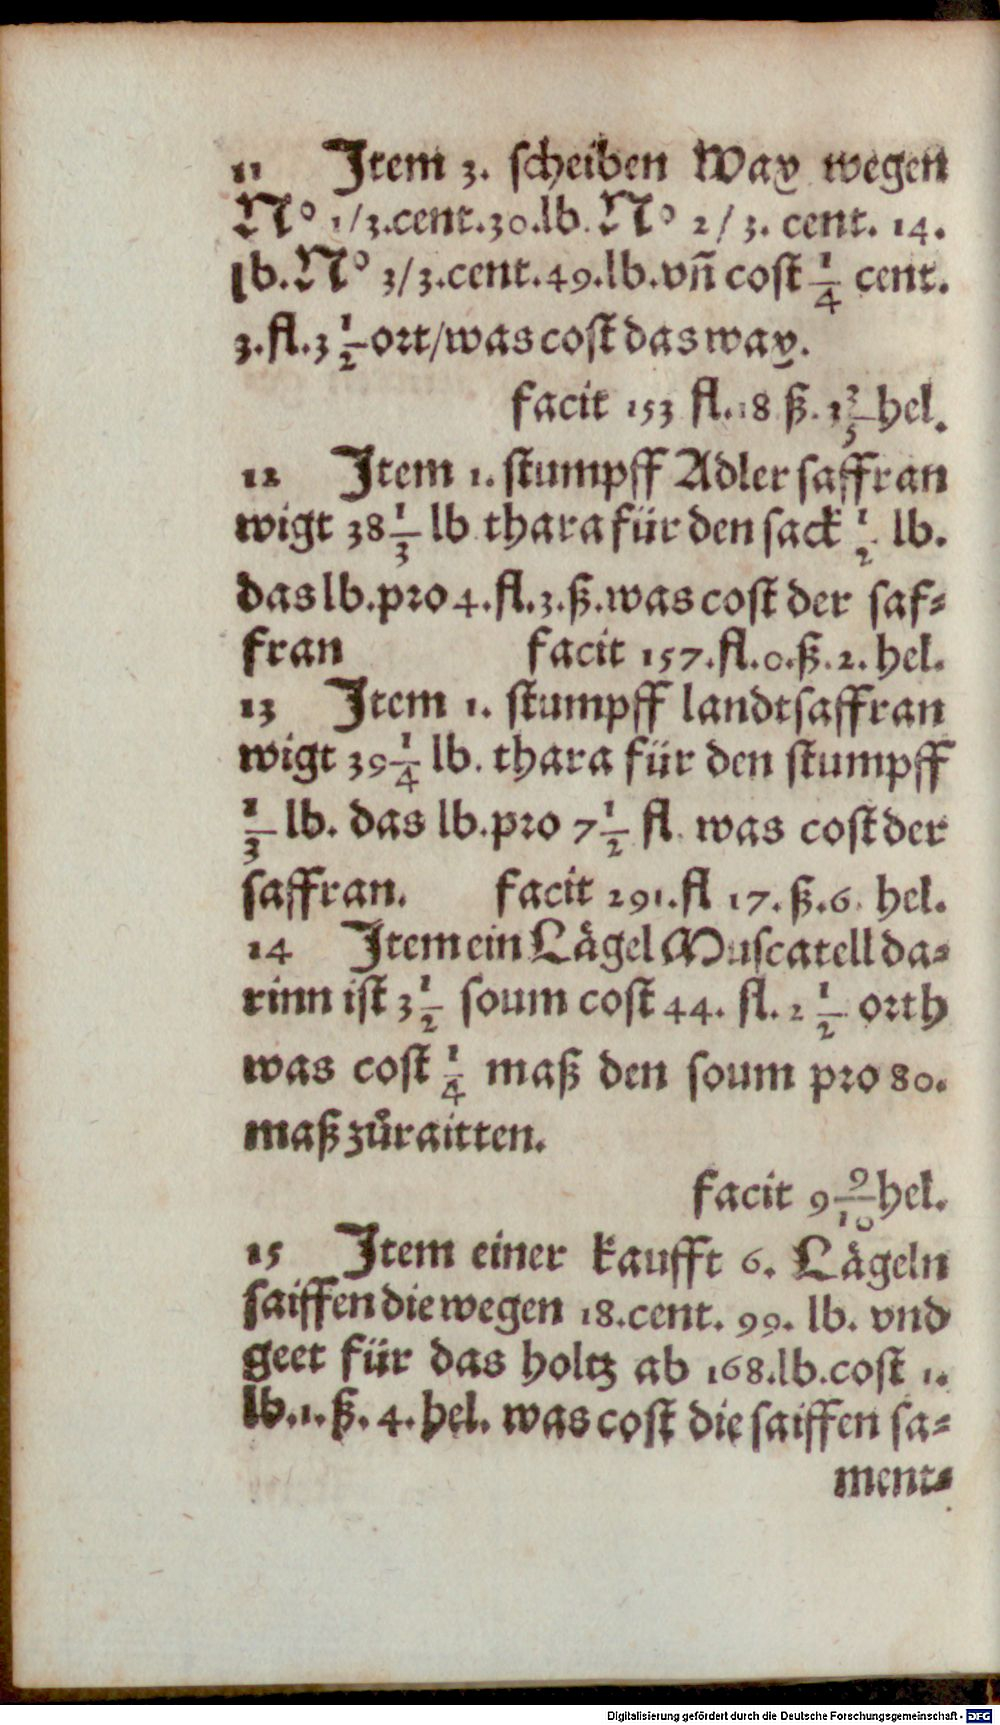 11 Item 3. scheiben Way wegen
N° 1/3.cent.30.lb. N° 2/3. cent. 14.
lb. N° 3/3.cent.49.lb.vñ cost 1/4 cent.
3.fl.3 1/2 ort/was cost das way.
facit 153 fl. 18 ß. 1 2/5 hel.
12 Item 1. stumpff Adler saffran
wigt 38 1/3 lb thara für den sack 1/2 lb.
das lb.pro 4.fl.3.ß.was cost der saf-
fran facit 157.fl.0.ß.2.hel.
13 Item 1. stumpff landtsaffran
wigt 39 1/4 lb. thara für den stumpff
1/3 lb. das lb.pro 7 1/2 fl. was cost der
saffran. facit 291.fl 17.ß.6. hel.
14 Item ein Lägel Muscatell da-
rinn ist 3 1/2 soum cost 44. fl. 2 1/2 orth
was cost 1/4 maß den soum pro 80.
maß zůraitten.
facit 9 9/10 hel.
15 Item einer kaufft 6. Lägeln
saiffen die wegen 18.cent. 99. lb. vnd
geet für das holtz ab 168.lb.cost 1.
lb.1.ß.4.hel. was cost die saiffen sa-
ment-
Digitalisierung gefördert durch die Deutsche Forschungsgemeinschaft - DFG